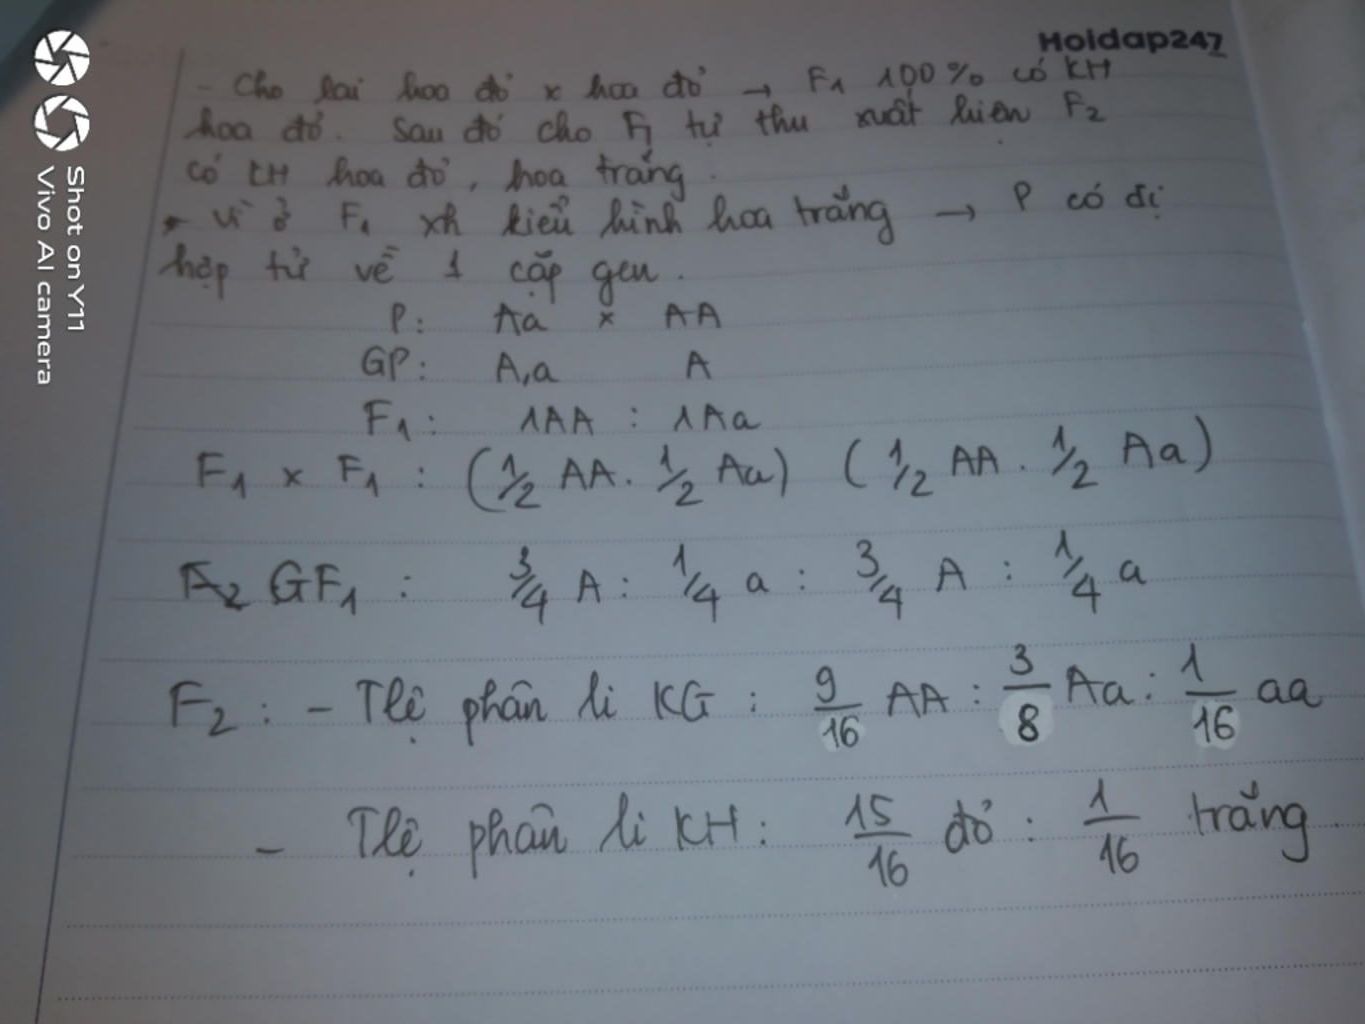 Hoidap247
- Cho lai hoa đỏ x hoa đỏ → F1 100% có KH
hoa đỏ. Sau đó cho F1 tự thu xuất hiện F2
có KH hoa đỏ, hoa trắng.
- Vì ở F1 xh kiểu hình hoa trắng → P có dị
hợp tử về 1 cặp gen.
P: Aa x AA
GP: A,a A
F1: 1AA : 1Aa
F1 x F1 : (1/2 AA. 1/2 Aa) (1/2 AA. 1/2 Aa)
GF1 : 3/4 A: 1/4 a : 3/4 A : 1/4 a
F2 : - Tlệ phân li KG : 9/16 AA : 3/8 Aa : 1/16 aa
- Tlệ phân li KH: 15/16 đỏ : 1/16 trắng.
Shot on Y11
Vivo AI camera